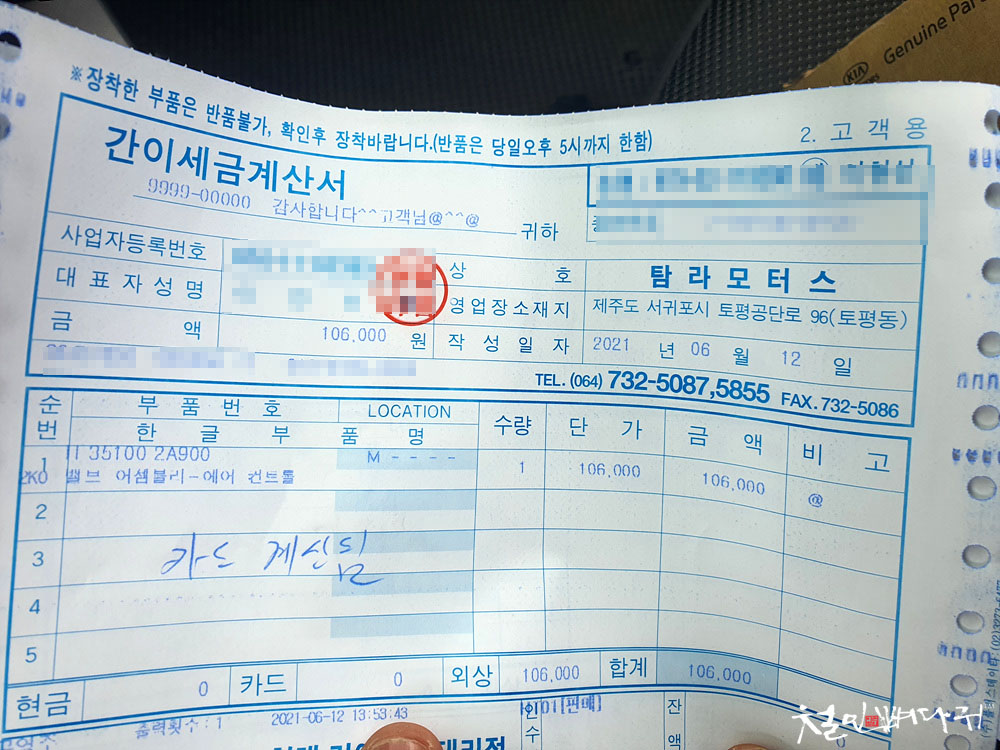 KIA
Genuine Par
※장착한 부품은 반품불가, 확인후 장착바랍니다.(반품은 당일오후 5시까지 한함)
2. 고객용
간이세금계산서
9999-00000 감사합니다^^고객님@^^@ 귀하
사업자등록번호
상 호 탐라모터스
대표자성명
영업장소재지 제주도 서귀포시 토평공단로 96(토평동)
금 액 106,000 원 작성일자 2021 년 06 월 12 일
TEL. (064) 732-5087,5855 FAX. 732-5086
순번 부품번호 LOCATION 수량 단가 금액 비고
한글부품명
1 35100 2A900 M - - - - 1 106,000 106,000 @
2K0 밸브 어셈블리-에어 컨트롤
2
3 카드 계산됨
4
5
현금 0 카드 0 외상 106,000 합계 106,000
출력횟수 : 1 2021-06-12 13:53:43 [판매] 인수 잔액
철민빠따쥐